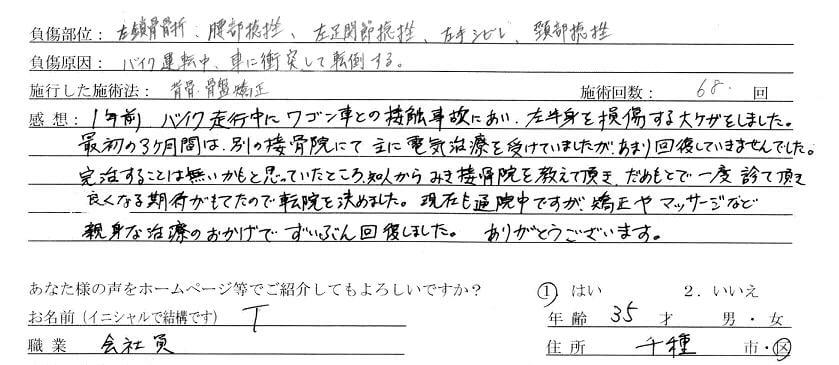 負傷部位: 左鎖骨骨折、腰部捻挫、左足関節捻挫、左手シビレ、頚部捻挫
負傷原因: バイク運転中、車に衝突して転倒する。
施行した施術法: 背骨・骨盤矯正 施術回数: 68. 回
感想: 1年前 バイク走行中にワゴン車との接触事故にあい、左半身を損傷する大ケガをしました。
最初の3ヶ月間は、別の接骨院にて主に電気治療を受けていましたが、あまり回復していきませんでした。
完治することは無いかもと思っていたところ、知人からみき接骨院を教えて頂き、だめもとで一度診て頂き
良くなる期待がもてたので転院を決めました。現在も通院中ですが、矯正やマッサージなど
親身な治療のおかげでずいぶん回復しました。ありがとうございます。
あなた様の声をホームページ等でご紹介してもよろしいですか? 1. はい 2. いいえ
お名前(イニシャルで結構です) T 年齢 35 才 男・女
職業 会社員 住所 千種 市・区